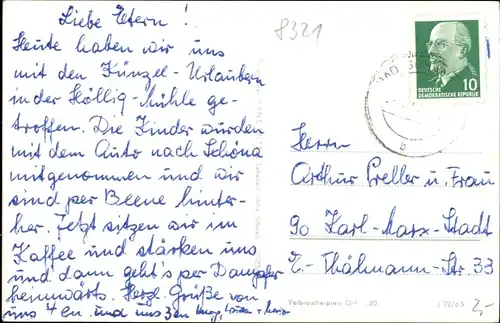 Liebe Eltern!
Heute haben wir uns
mit den Künzel-Urlaubern
in der Höllig-Mühle ge-
troffen. Die Kinder wurden
mit dem Auto nach Schöna
mitgenommen und wir
sind per Beene hinter-
her. Jetzt sitzen wir im
Kaffee und stärken uns
und dann geht's per Dampfer
heimwärts. Herzl. Grüße von
uns 4en. und uns 3en
8321
DEUTSCHE
DEMOKRATISCHE REPUBLIK
10
Herrn
Arthur Preller u. Frau
90 Karl-Marx-Stadt
E.-Thälmann-Str. 33
Verbraucherpreis DM -.20
2,-